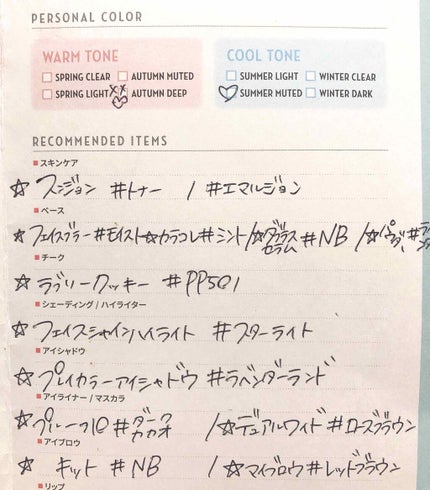 PERSONAL COLOR
WARM TONE
COOL TONE
SPRING CLEAR AUTUMN MUTED
SUMMER LIGHT WINTER CLEAR
SPRING LIGHT AUTUMN DEEP
SUMMER MUTED WINTER DARK
RECOMMENDED ITEMS
スキンケア
☆ スンジョン #トナー / #エマルジョン
ベース
☆ フェイスブラー #モイスト ☆カラコレ#ミント/☆ダブラス セラム #NB /☆パウダ
チーク
☆ ラブリークッキー #PP501
シェーディング / ハイライター
☆ フェイスシャインハイライト #スターライト
アイシャドウ
☆ プレイカラーアイシャドウ #ラベンダーランド
アイライナー / マスカラ
☆ プルーフ10 #ダークカカオ /☆デュアルワイド #ローズブラウン
アイブロウ
☆ キット #NB /☆マイブロウ#レッドブラウン
リップ